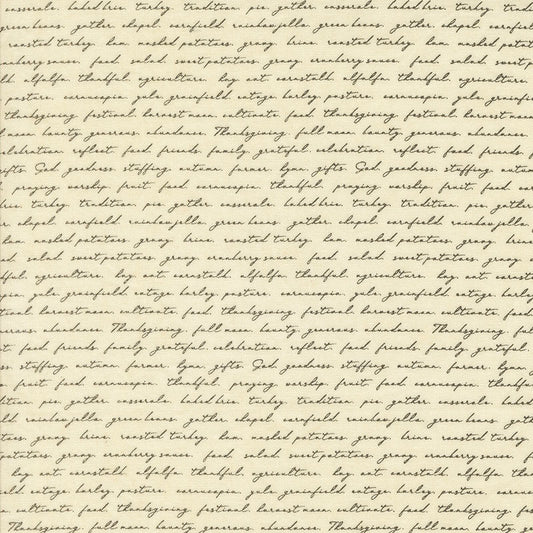 casserole. baked brie. turkey. tradition. pie. gather. casserole. baked brie. turkey. tradi
green beans. gather. chapel. cornfield. rainbow jello. green beans. gather. chapel. cornfield
roasted turkey. ham. mashed potatoes. gravy. brine. roasted turkey. ham. mashed potat
cranberry sauce. food. salad. sweet potatoes. gravy. cranberry sauce. food. salad. sweet p
alfalfa. thankful. agriculture. hay. oat. cornstalk. alfalfa. thankful. agriculture.
pasture. cornucopia. yule. grainfield. cotage. barley. pasture. cornucopia. yule. grainfie
Thanksgiving. festival. harvest moon. cultivate. food. thanksgiving. festival. harvest moon
moon. bounty. generous. abundance. Thanksgiving. full moon. bounty. generous. abundance.
celebration. reflect. food. friends. family. grateful. celebration. reflect. food. friends.
gifts. God. goodness. stuffing. autumn. farmer. hymn. gifts. God. goodness. stuffing. autum
praying. worship. fruit. food. cornucopia. thankful. praying. worship. fruit. food. cor
brie. turkey. tradition. pie. gather. casserole. baked brie. turkey. tradition. pie. gather
chapel. cornfield. rainbow jello. green beans. gather. chapel. cornfield. rainbow jello.
ham. mashed potatoes. gravy. brine. roasted turkey. ham. mashed potatoes. gravy. brine
salad. sweet potatoes. gravy. cranberry sauce. food. salad. sweet potatoes. gravy.
agriculture. hay. oat. cornstalk. alfalfa. thankful. agriculture. hay. oat. cornst
yule. grainfield. cotage. barley. pasture. cornucopia. yule. grainfield. cotage. barley
harvest moon. cultivate. food. thanksgiving. festival. harvest moon. cultivate. food
abundance. Thanksgiving. full moon. bounty. generous. abundance. Thanksgiving. ful
food. friends. family. grateful. celebration. reflect. food. friends. family. grateful.
stuffing. autumn. farmer. hymn. gifts. God. goodness. stuffing. autumn. farmer. hymn.
fruit. food. cornucopia. thankful. praying. worship. fruit. food. cornucopia. thankfu
pie. gather. casserole. baked brie. turkey. tradition. pie. gather. casserole. baked
rainbow jello. green beans. gather. chapel. cornfield. rainbow jello. green beans.
gravy. brine. roasted turkey. ham. mashed potatoes. gravy. brine. roasted turkey.
gravy. cranberry sauce. food. salad. sweet potatoes. gravy. cranberry sauce.
hay. oat. cornstalk. alfalfa. thankful. agriculture. hay. oat. cornstalk. alfalfa. th
cotage. barley. pasture. cornucopia. yule. grainfield. cotage. barley. pasture. cornuco
cultivate. food. thanksgiving. festival. harvest moon. cultivate. food. thanksgiving.
Thanksgiving. full moon. bounty. generous. abundance. Thanksgiving. full moon. bounty. ge